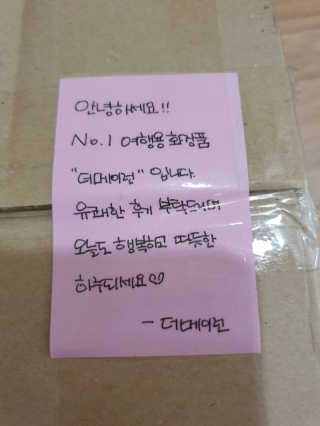 안녕하세요!!
No.1 여행용 화장품
"더메이런" 입니다.
유쾌한 후기 부탁드리며
오늘도 행복하고 따뜻한
하루되세요♡
- 더메이런